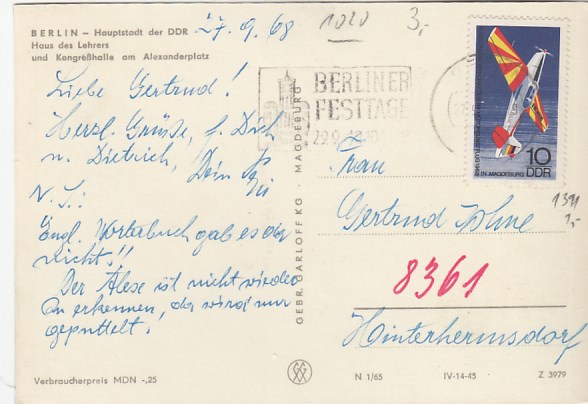 BERLIN – Hauptstadt der DDR
Haus des Lehrers
und Kongreßhalle am Alexanderplatz
27.9.68
1020
3,-
Liebe Gertrud!
Herzl. Grüße, f. Dich
u. Dietrich, Dein
N.S.:
Engl. Wörterbuch gab es da
nicht!!
Der Alex ist nicht wieder
zu erkennen, da wird nur
gebuddelt.
Verbraucherpreis MDN -,25
GEBR. GARLOFF KG · MAGDEBURG
BERLINER
FESTTAGE
29.9.
10
DDR
IN MAGDEBURG
1391
1,-
Frau
Gertrud
8361
Hinterhermsdorf
N 1/65
IV-14-45
Z 3979